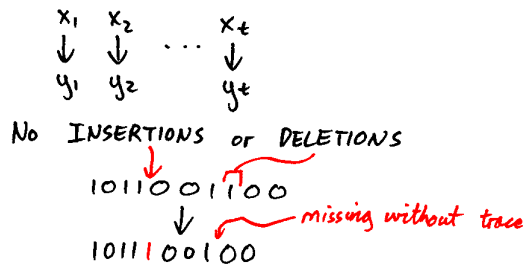 x1 x2 ... xt
y1 y2 yt
No INSERTIONS or DELETIONS
1011001100
missing without trace
1011100100